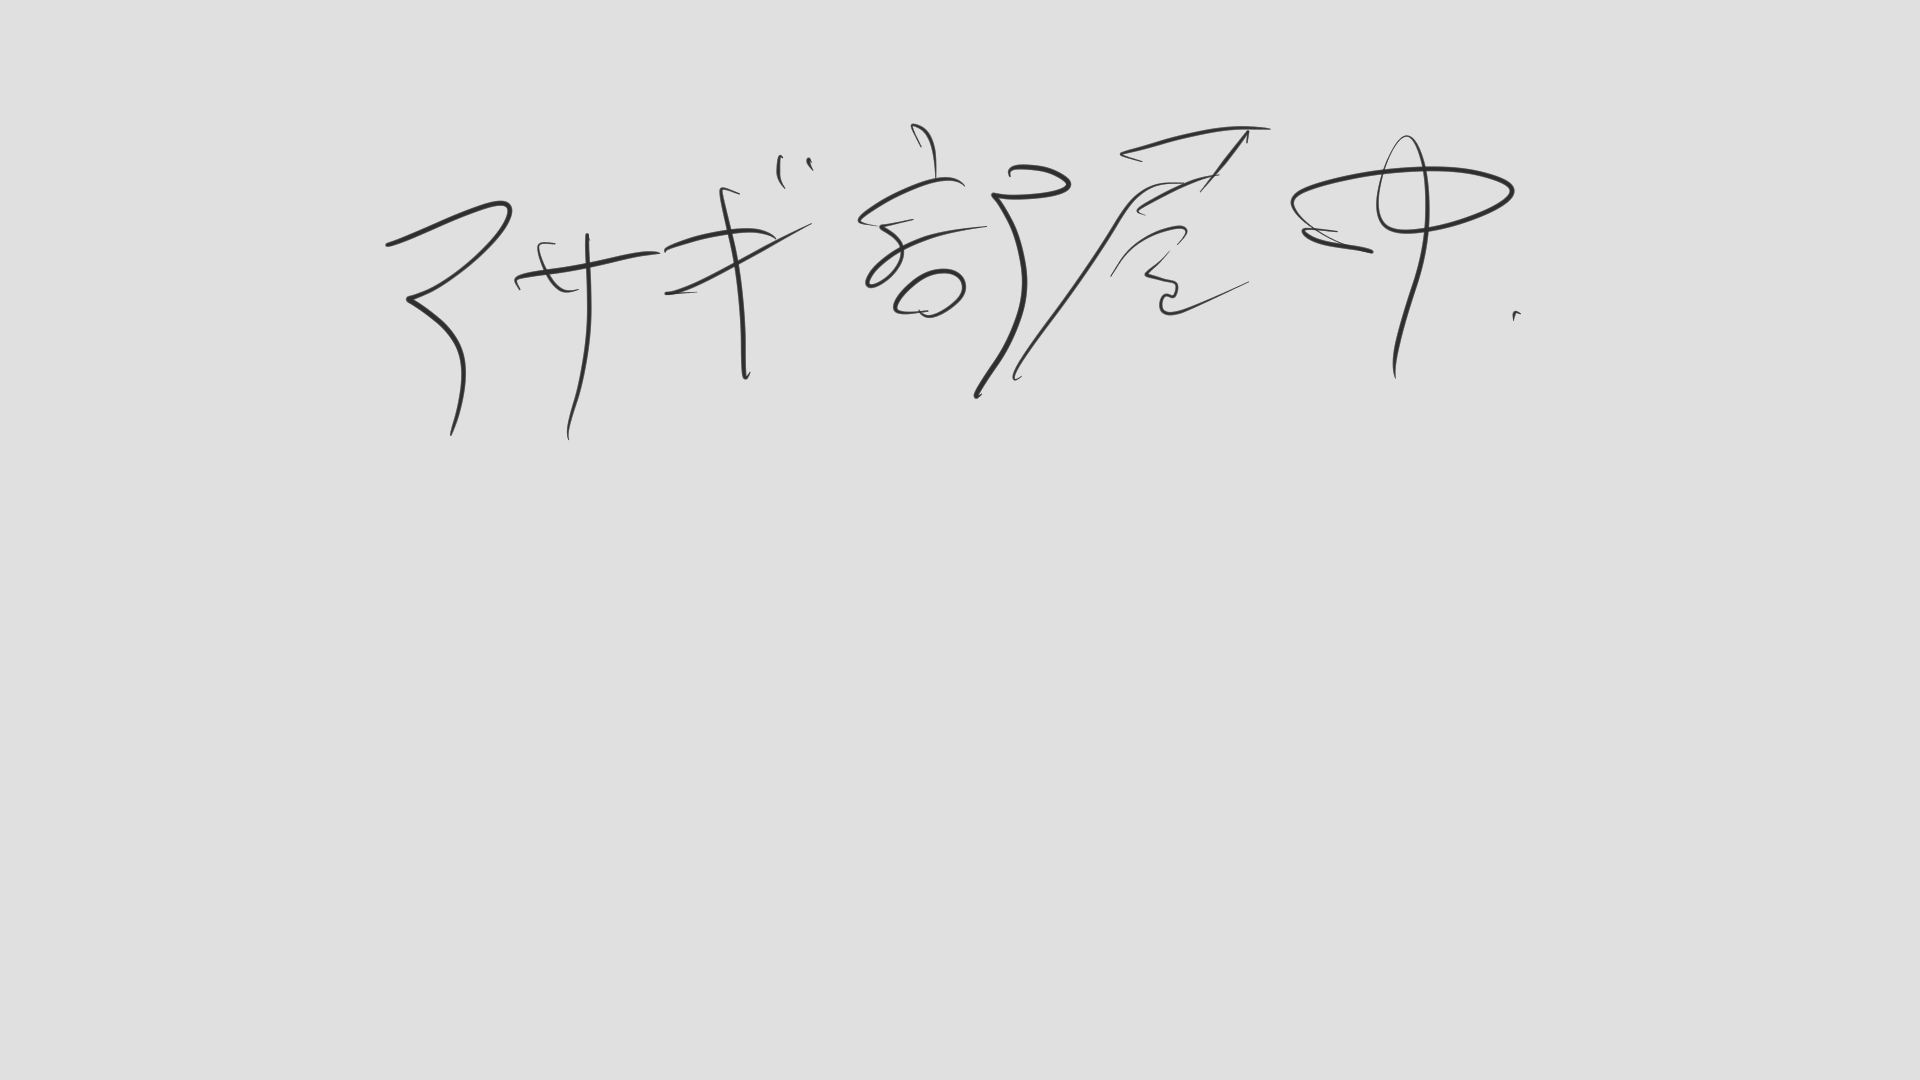 アサギ部屋中.